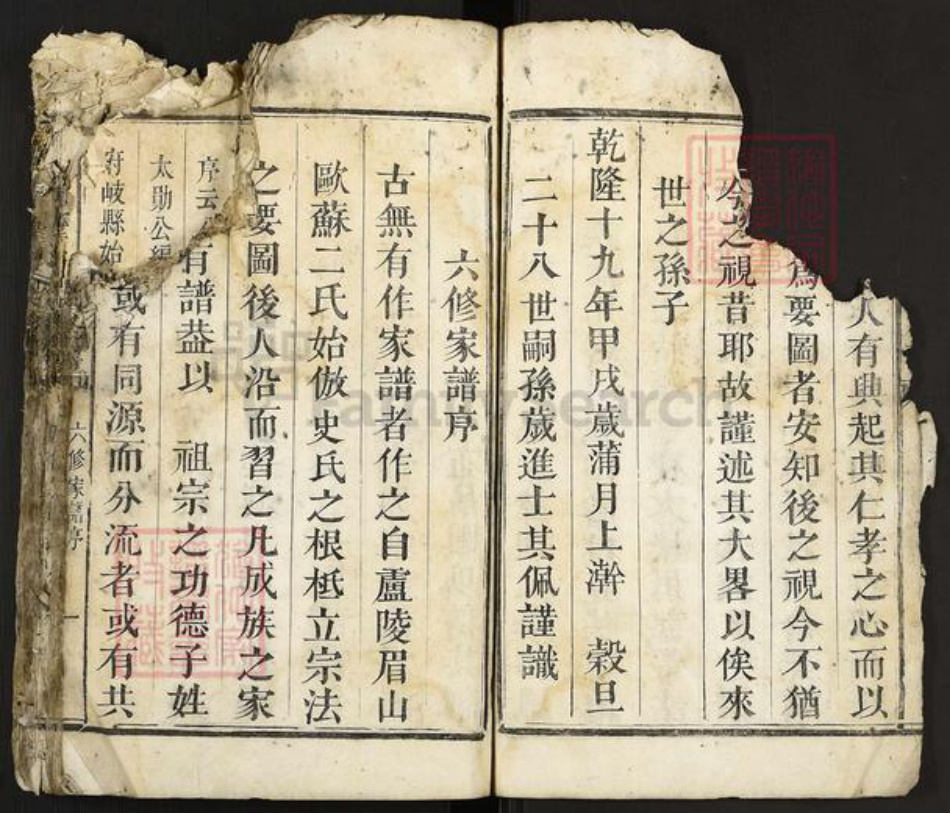 人有興起其仁孝之心而以
爲要圖者安知後之視今不猶
今之視昔耶故謹述其大畧以俟來
世之孫子
乾隆十九年甲戌歲蒲月上澣 榖旦
二十八世嗣孫歲進士其佩謹識
六修家譜序
古無有作家譜者作之自盧陵眉山
歐蘇二氏始倣史氏之根柢立宗法
之要圖後人沿而習之凡成族之家
有譜葢以 祖宗之功德子姓
或有同源而分流者或有共
序云
太勛公編
府岐縣始
六修家譜序 一
familysearch